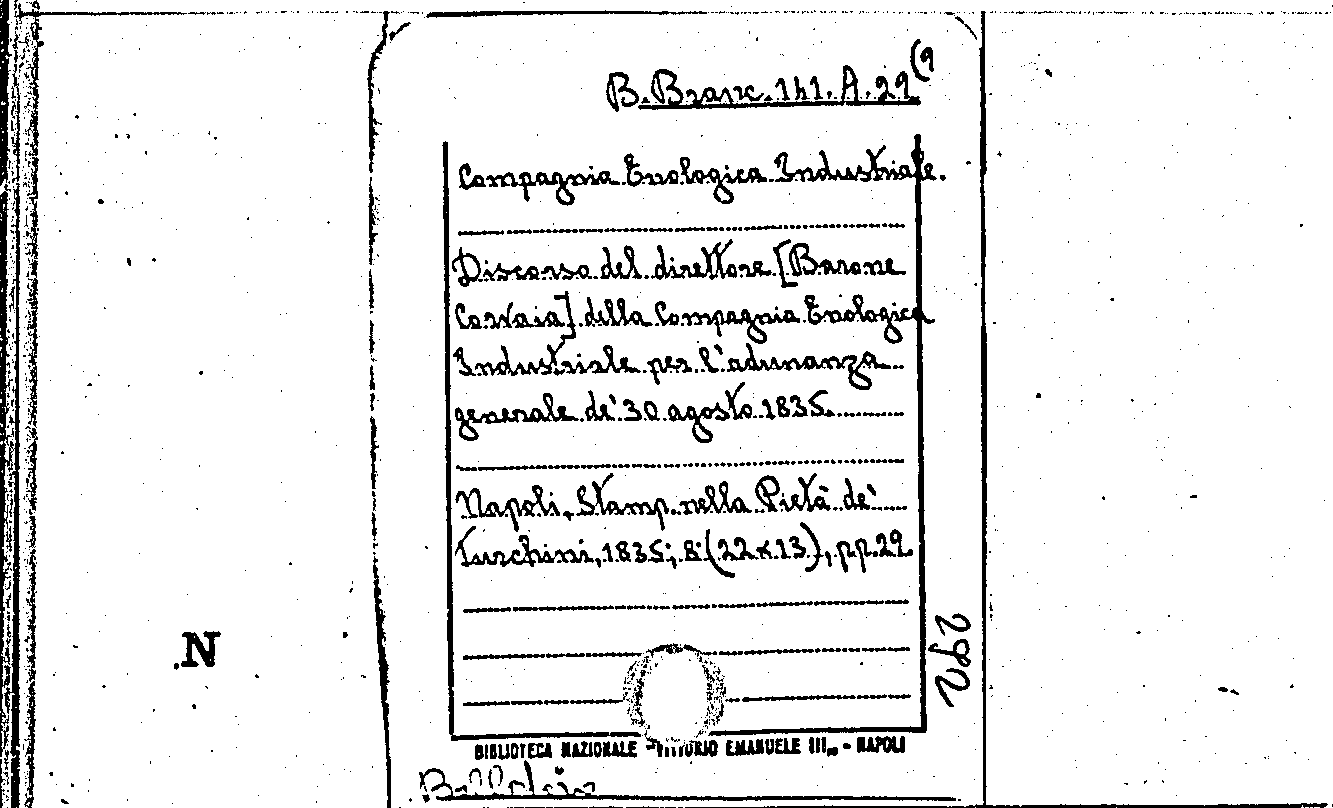 B. Branc. 141. A. 29(9
Compagnia Enologica Industriale.
Discorso del direttore [Barone
Corvaia] della Compagnia Enologica
Industriale per l'adunanza
generale de' 30 agosto 1835.
Napoli, Stamp. nella Pietà de'
Turchini, 1835; 8° (22x13), pp. 29.
N
BIBLIOTECA NAZIONALE "VITTORIO EMANUELE III„ - NAPOLI